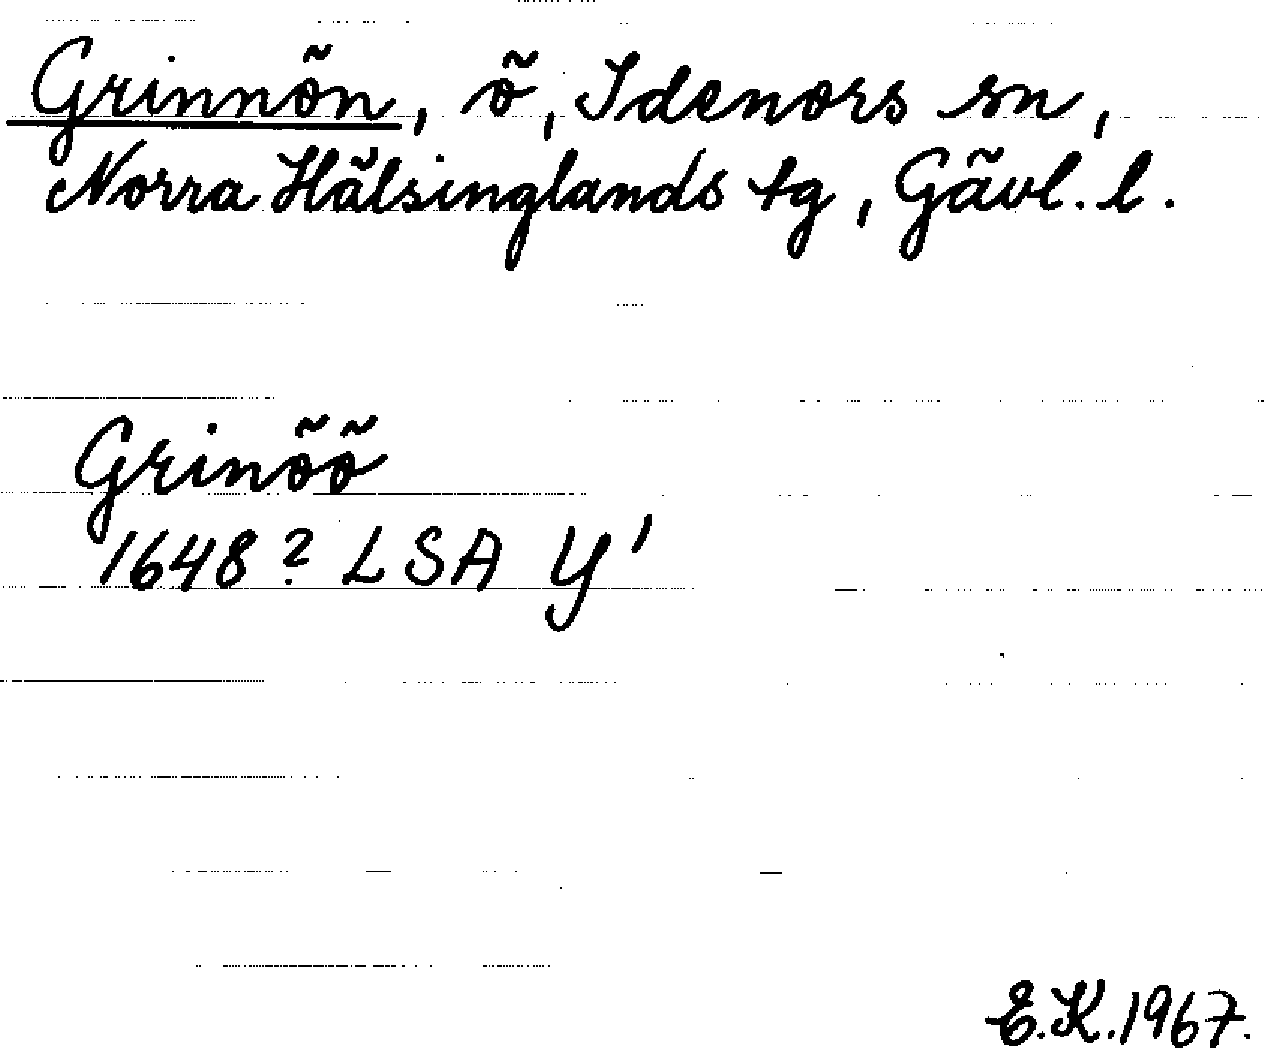 Grinnön, ö, Idenors sn,
Norra Hälsinglands tg, Gävl. l.
Grinöö
1648? LSA Y'
E.K. 1967.